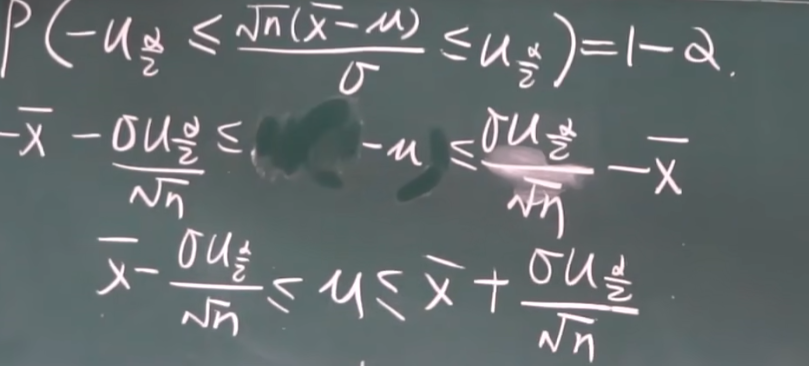 P(-u_{α/2} ≤ √n(x̄-μ)/σ ≤ u_{α/2})=1-α.
-x̄ - σu_{α/2}/√n ≤ -μ ≤ σu_{α/2}/√n - x̄
x̄ - σu_{α/2}/√n ≤ μ ≤ x̄ + σu_{α/2}/√n